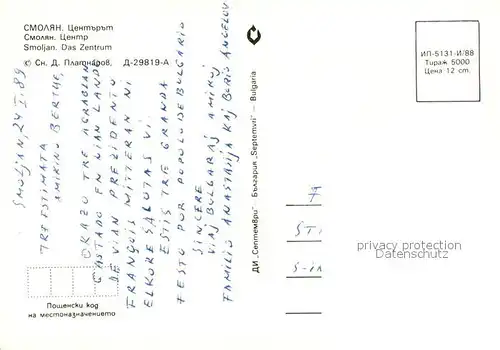 СМОЛЯН. Центърът
Смолян. Центр
Smoljan. Das Zentrum
© Сн. Д. Платнаров, Д-29819-А
SMOLJAN, 24 I. 89
TRE ESTIMATA
AMIKINO BERTHE,
OKAZO TRE AGRABLA
GASTADO EN VIAN LAND
DE VIAN PREZIDENTO
FRANÇOIS MITTERAN NI
ELKORE SALUTAS VI.
ESTIS TRE GRANDA
FESTO POR POPOLO DE BULGARIO
SINCERE
VIAJ BULGARAJ AMIKOJ
FAMILIO ANASTASIJA KAJ BORIS ANGELOV
ДИ „Септември" - България „Septemvri" — Bulgaria
ИП-5131-И/88
Тираж 5000
Цена 12 ст.
privacy protection
Datenschutz
Пощенски код
на местоназначението